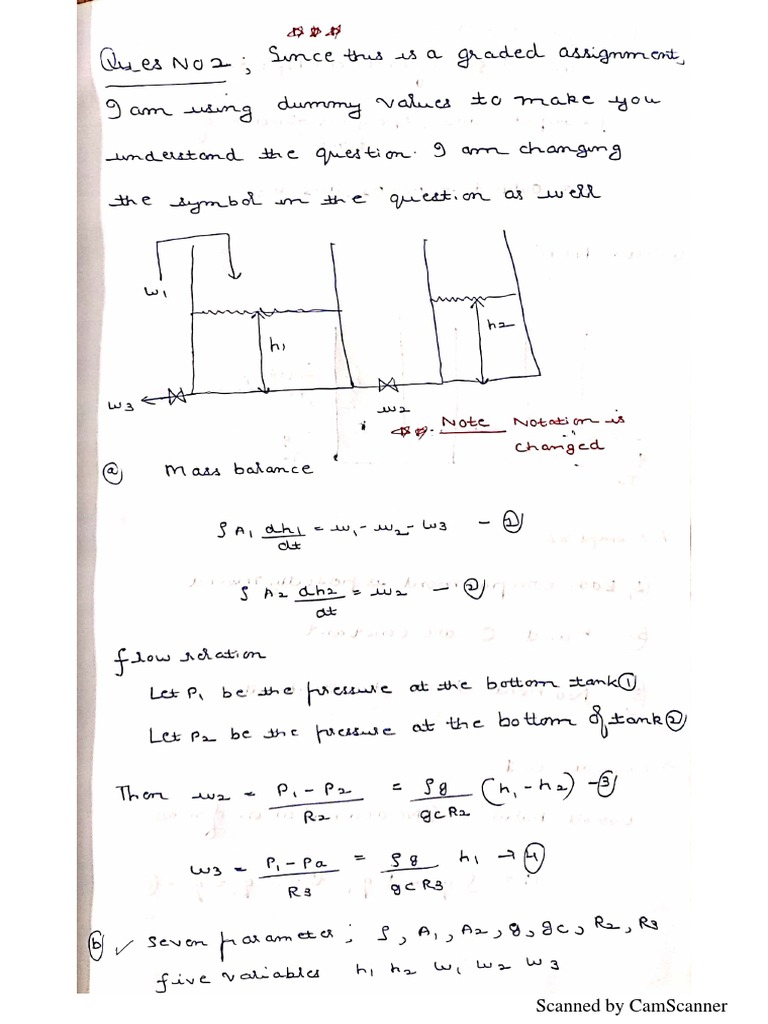 ☆☆☆
Ques No 2 ; Since this is a graded assignment,
I am using dummy values to make you
understand the question. I am changing
the symbol in the question as well
w1
h1
h2
w3
w2
☆☆. Note Notation is
changed
ⓐ Mass balance
ρ A1 dh1/dt = w1 - w2 - w3 - ①
ρ A2 dh2/dt = w2 - ②
flow relation
Let P1 be the pressure at the bottom tank ①
Let P2 be the pressure at the bottom of tank ②
Then w2 = P1 - P2 / R2 = ρg / gc R2 (h1 - h2) - ③
w3 = P1 - Pa / R3 = ρg / gc R3 h1 → ④
ⓑ ✓ Seven parameter ; ρ, A1, A2, g, gc, R2, R3
five variables h1 h2 w1 w2 w3
Scanned by CamScanner